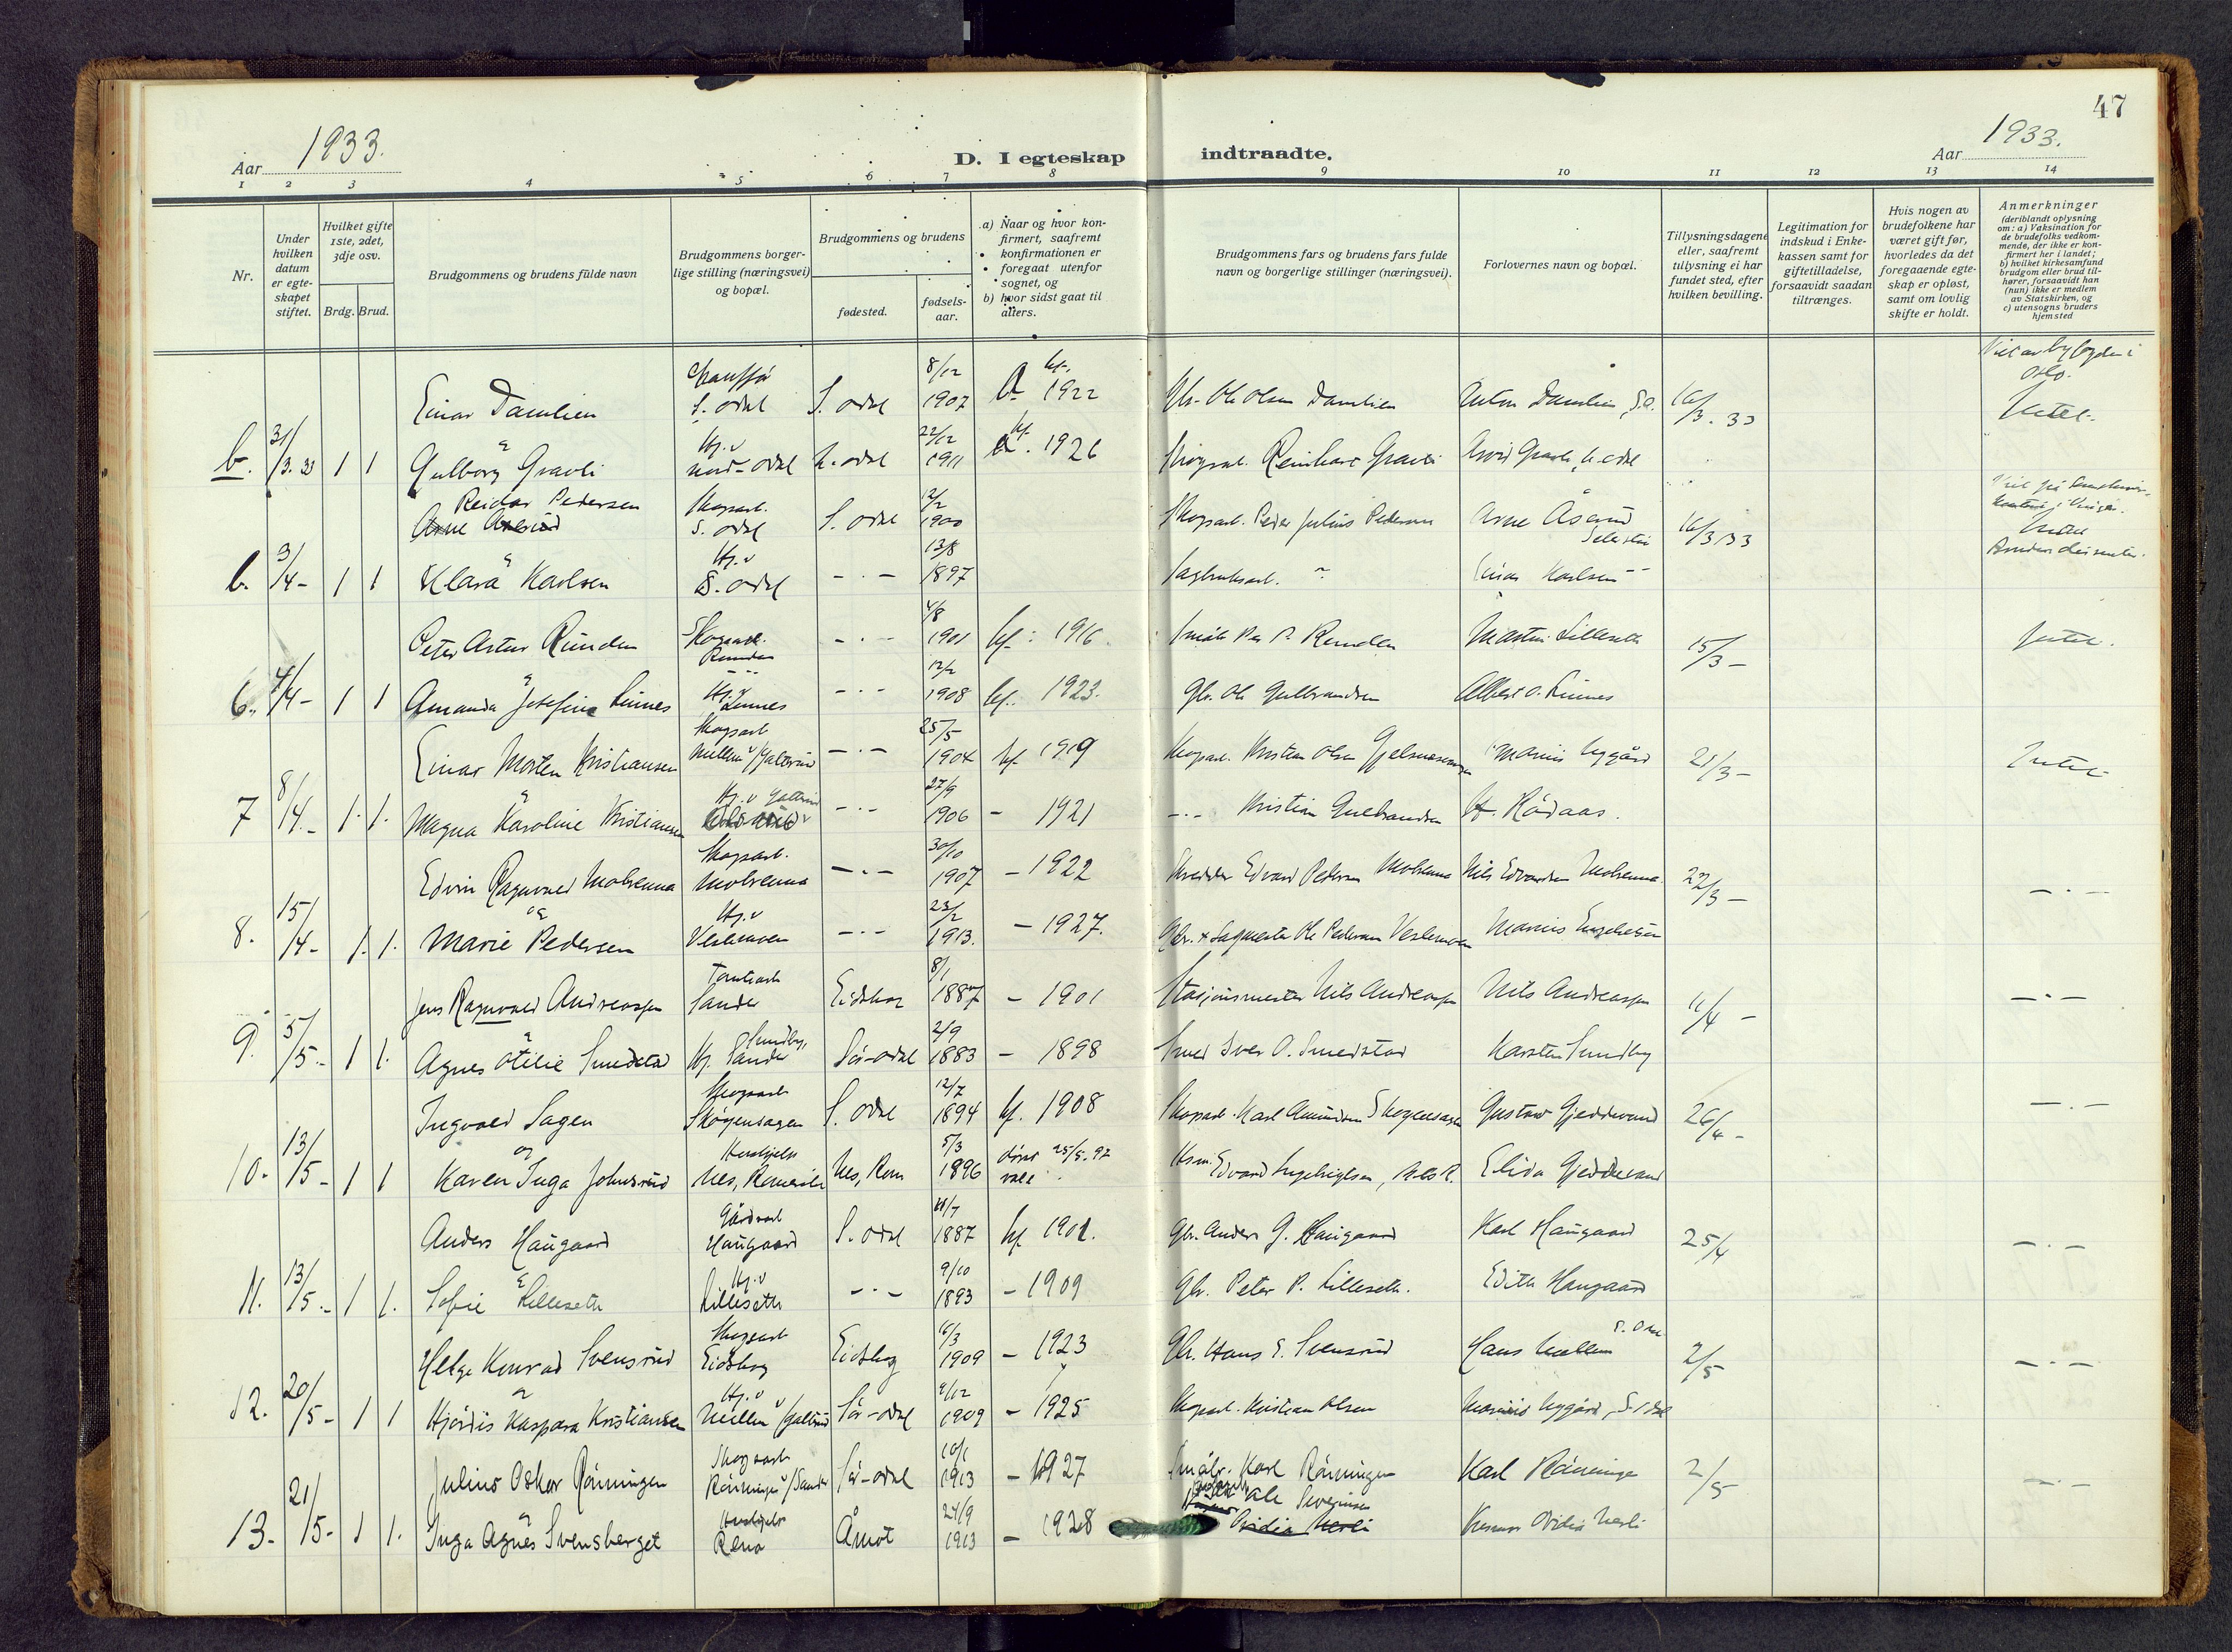 47
Aar 1933.
D. I egteskap indtraadte.
Aar 1933.
1 2 3 4 5 6 7 8 9 10 11 12 13 14
Nr.
Under
hvilken
datum
er egte-
skapet
stiftet.
Hvilket gifte
1ste, 2det,
3dje osv.
Brdg. Brud.
Brudgommens og brudens fulde navn
Brudgommens borger-
lige stilling (næringsvei)
og bopæl.
Brudgommens og brudens
fødested.
fødsels-
aar.
a) Naar og hvor kon-
firmert, saafremt
konfirmationen er
foregaat utenfor
sognet, og
b) hvor sidst gaat til
alters.
Brudgommens fars og brudens fars fulde
navn og borgerlige stillinger (næringsvei).
Forlovernes navn og bopæl.
Tillysningsdagene
eller, saafremt
tillysning ei har
fundet sted, efter
hvilken bevilling.
Legitimation for
indskud i Enke-
kassen samt for
giftetilladelse,
forsaavidt saadan
tiltrænges.
Hvis nogen av
brudefolkene har
været gift før,
hvorledes da det
foregaaende egte-
skap er opløst,
samt om lovlig
skifte er holdt.
Anmerkninger
(deriblandt oplysning
om: a) Vaksination for
de brudefolks vedkom-
mende, der ikke er kon-
firmert her i landet;
b) hvilket kirkesamfund
brudgom eller brud til-
hører, forsaavidt han
(hun) ikke er medlem
av Statskirken, og
c) utensogns bruders
hjemsted
Einar Damlien S. odal S. odal 8/12 1907 kf. 1922 Ole Olsen Damlien Anton Damlien, S.O. 16/3. 33
b. 31/3. 33 1 1 Gulborg Gravli Hj. v Nord-odal N. odal 22/12 1911 kf. 1926 Skogsarb. Reinhart Gravli Arvid Gravli, N. odal
Reidar Pedersen Skogsarb. S. odal S. odal 12/2 1900 Skogsarb. Peder Julius Pedersen Arne Åserud 16/3 33
b. 3/4 - 1 1 Klara Karlsen Hj. v S. odal - . - 13/8 1897 Sagbruksarb. Einar Karlsen
Peter Artur Runden Skogsarb. Runden - . - 4/8 1901 kf. 1916 Martin Lilleseth 15/3 - Intet.
6. 4/4 - 1 1 Amanda Josefine Linnes Hj. v Linnes - . - 12/2 1908 kf. 1923. Gbr. Ole Gulbrandsen Albert O. Linnes
Einar Morten Kristiansen Skogsarb - . - 25/5 1904 kf 1919 Skogsarb. Kristian Olsen Marius Nygård 21/3 - Intet
7 8/4 - 1. 1. Magna Karoline Kristiansen Hj. v - . - 27/9 1906 - 1921 - . - Kristian Gulbrandsen
Edvin Ragnvald Mobrenna Skogsarb. Mobrenna - . - 30/10 1907 - 1922 Edvard Pedersen Mobrenna Nils Edvardsen Mobrenna 22/3 - - . -
8. 15/4 - 1. 1. Marie Pedersen Hj. v - . - 23/2 1913. - 1927. Gbr. & Sagmester Ole Pedersen
Jens Ragnvald Andreassen Sander Eidskog 8/1 1887 - 1901 Stasjonsmester Nils Andreassen Nils Andreassen - . -
9. 5/5 - 1 1. Agnes Otilie Smedstad Hj. Sander Sør-odal 2/9 1883 - 1898 Smed Iver O. Smedstad Karsten Sundby
Ingvald Sagen Skogsarb Skogensagen S. odal 12/7 1894 kf. 1908 Skogsarb. Karl Amundsen Skogensagen Gustav Gjeddevand 26/4 - - . -
10. 13/5 - 1 1 Karen Inga Johnsrud Hushjelp Nes, Romerike Nes, Rom 5/3 1896 Edvard Ingebrigtsen, Elida Gjeddevand
Anders Haugaard Gårdsarb Haugaard S. odal 1887 kf. 1901. Gbr. Anders G. Haugaard Karl Haugaard 25/4 - . -
11. 13/5 - 1 1. Sofie Lilleseth Hj. v Lilleseth - . - 9/10 1893 - 1909 Gbr. Peter P. Lilleseth. Edith Haugaard
Helge Konrad Svensrud Skogsarb Eidskog Eidskog 1909 - 1923 Gbr. Hans E. Svensrud Hans 2/5 - . -
12. 20/5 - 1 1 Hjørdis Kaspara Kristiansen Hj. v Sør-odal 1909 - 1925 Skogsarb. Kristian Olsen Marius Nygård, S. odal
Julius Oskar Rønningen Skogsarb Sør-odal 10/1 1913 - 1927 Småbr. Karl Rønningen Karl Rønningen 2/5
13. 21/5 - 1 1. Inga Agnes Svensberget Hushjelp Rena Åmot 24/9 1913 - 1928 Ole Severinsen